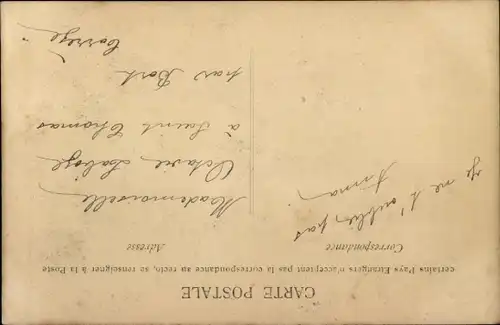 CARTE POSTALE
certains Pays Etrangers n'acceptent pas la correspondance au recto, se renseigner à la Poste
Correspondance
Adresse
je ne t'oublie pas
Irma
Mademoiselle
Octavie
à Saint Thomas
par Bort
Corrèze